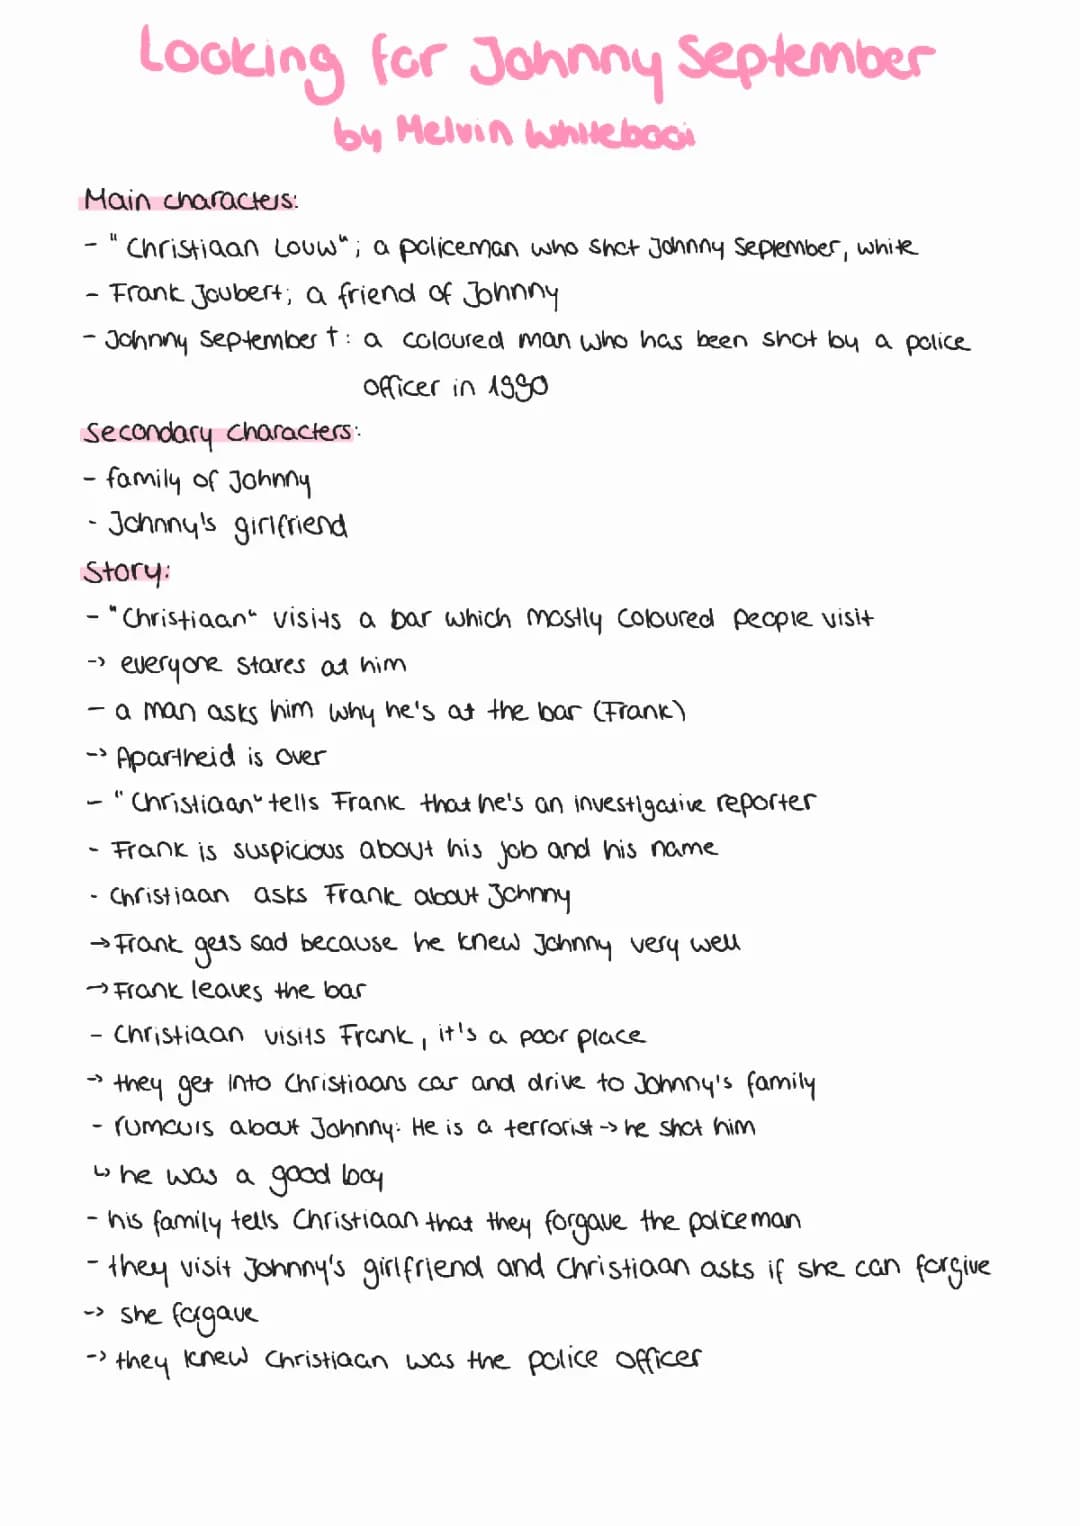 Looking for Johnny September
by Melvin Whitebooi
Main characters:
- "Christiaan Louw"; a policeman who shot Johnny September, white
- Frank Joubert; a friend of Johnny
- Johnny September †: a coloured man who has been shot by a police
officer in 1990
Secondary characters:
- family of Johnny
- Johnny's girlfriend
Story:
- "Christiaan" visits a bar which mostly coloured people visit
-> everyone stares at him
- a man asks him why he's at the bar (Frank)
-> Apartheid is over
- "Christiaan" tells Frank that he's an investigative reporter
- Frank is suspicious about his job and his name
- Christiaan asks Frank about Johnny
→ Frank gets sad because he knew Johnny very well
→ Frank leaves the bar
- Christiaan visits Frank, it's a poor place
-> they get into Christiaans car and drive to Johnny's family
- rumours about Johnny: He is a terrorist -> he shot him
↳ he was a good boy
- his family tells Christiaan that they forgave the policeman
- they visit Johnny's girlfriend and Christiaan asks if she can forgive
-> she forgave
-> they knew Christiaan was the police officer